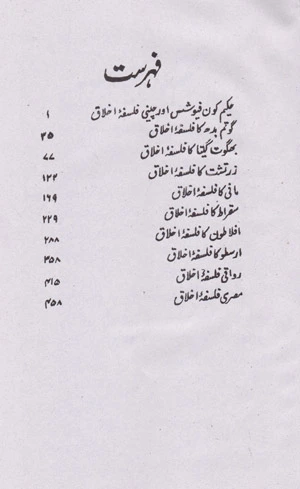 فہرست
حکیم کون فیوشس اور چینی فلسفۂ اخلاق ۱
گوتم بدھ کا فلسفۂ اخلاق ۲۵
بھگوت گیتا کا فلسفۂ اخلاق ۷۷
زرتشت کا فلسفۂ اخلاق ۱۲۲
مانی کا فلسفۂ اخلاق ۱۶۹
سقراط کا فلسفۂ اخلاق ۲۲۹
افلاطون کا فلسفۂ اخلاق ۲۸۸
ارسطو کا فلسفۂ اخلاق ۳۵۸
رواقی فلسفۂ اخلاق ۴۱۵
مصری فلسفۂ اخلاق ۴۵۸